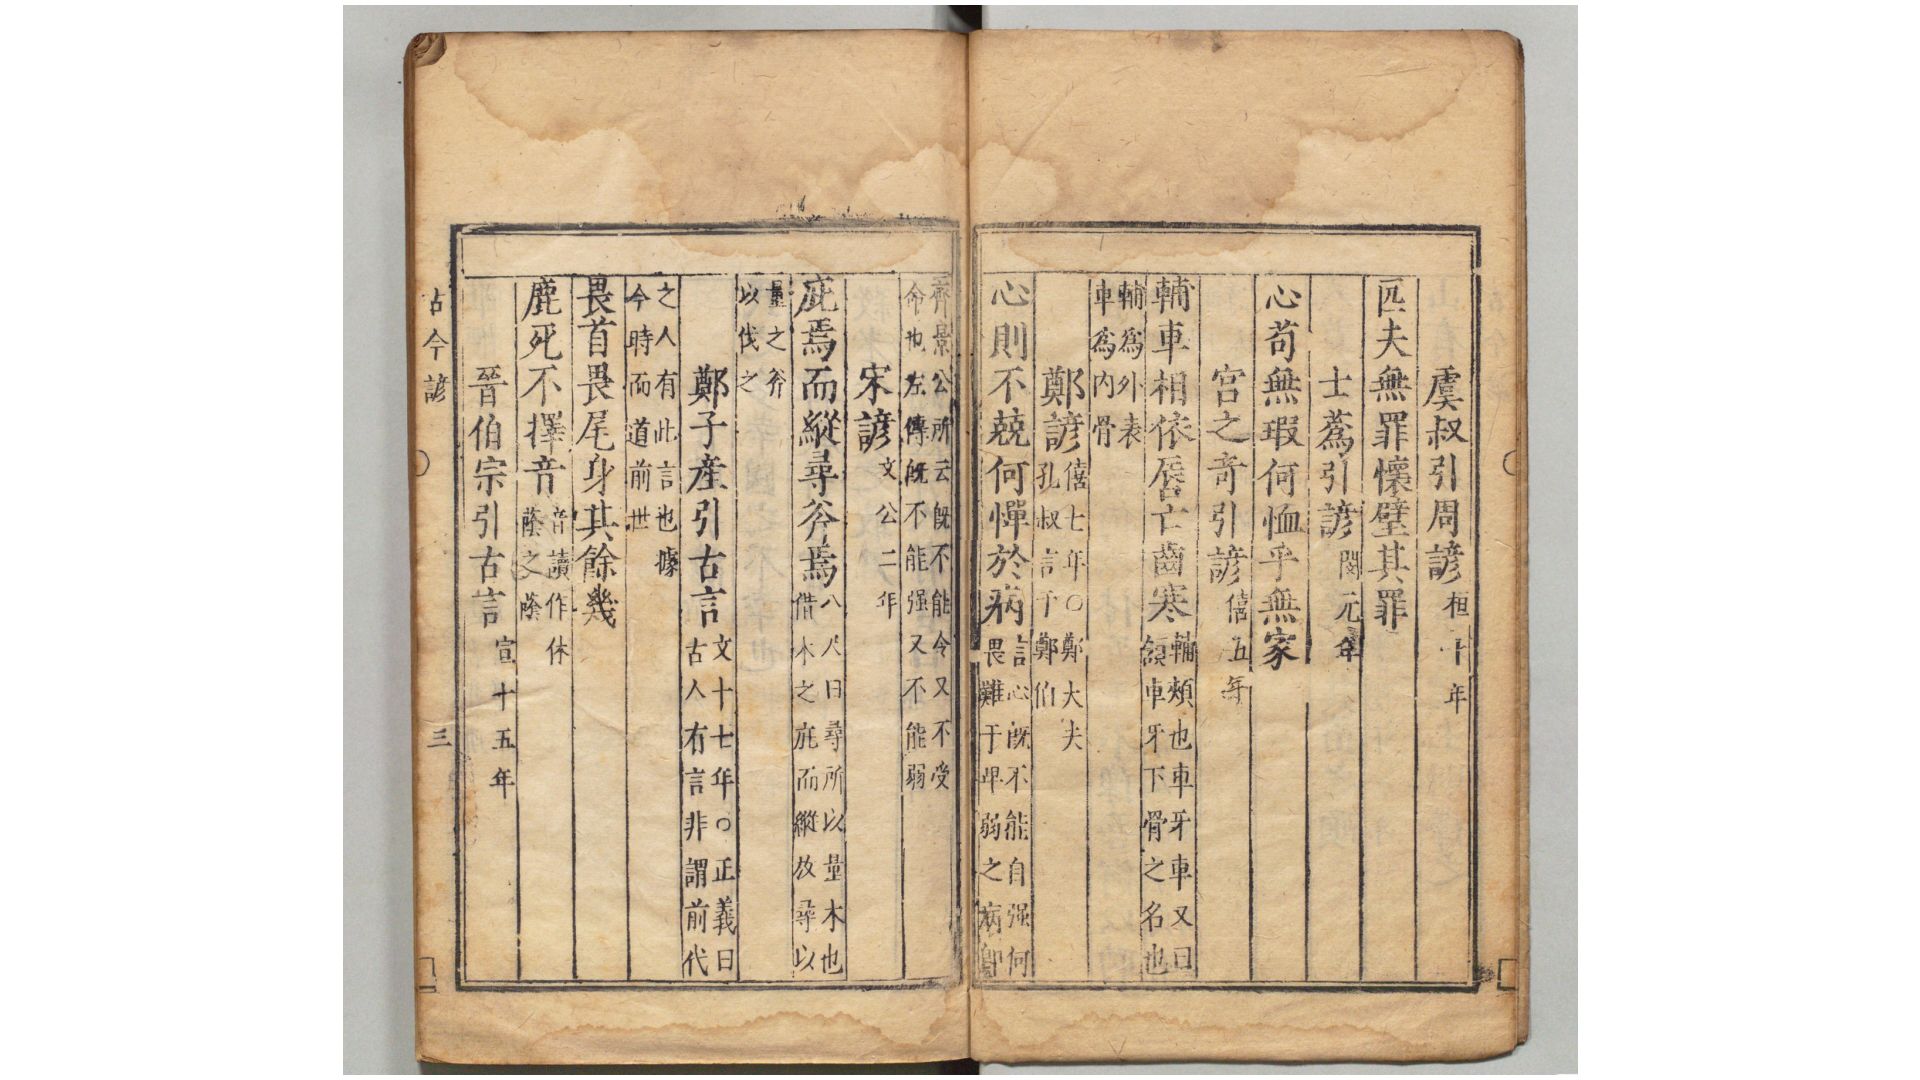 虞叔引周諺 桓十年
匹夫無罪懷璧其罪
士蒍引諺 閔元年
心苟無瑕何恤乎無家
宮之奇引諺 僖五年
輔車相依唇亡齒寒 輔頰也車牙車又曰
頷車牙下骨之名也
輔爲外表
車爲内骨
鄭諺 僖七年○鄭大夫
孔叔言于鄭伯
心則不兢何憚於病 言心既不能自强何
畏難于卑弱之病卽
齊景公所云既不能令又不受
命也左傳既不能强又不能弱
宋諺 文公二年
庇焉而縱尋斧焉 八尺曰尋所以量木也
借木之庇而縱放尋以
量之斧
以伐之
鄭子產引古言 文十七年○正義曰
古人有言非謂前代
之人有此言也據
今時而道前世
畏首畏尾身其餘幾
鹿死不擇音 音讀作休
蔭之蔭
晉伯宗引古言 宣十五年
古今諺 三